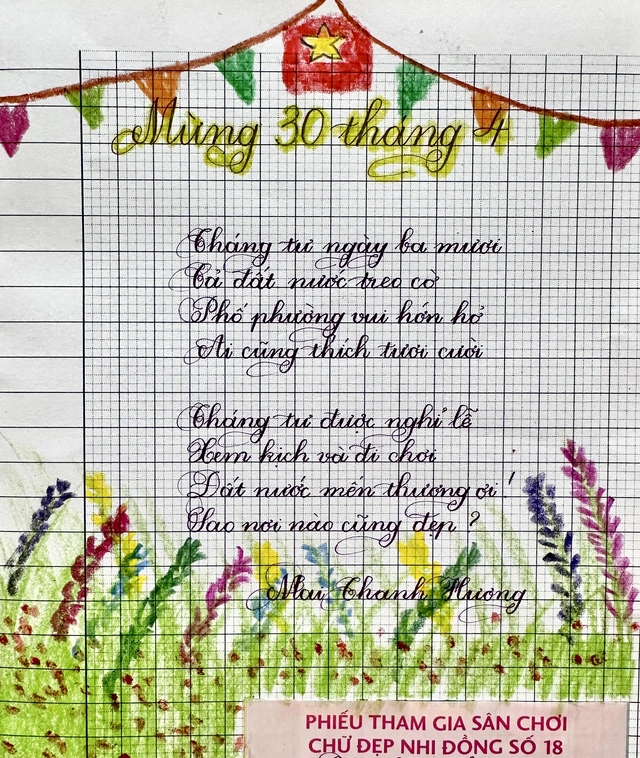 Mừng 30 tháng 4
Tháng tư ngày ba mươi
Cả đất nước treo cờ
Phố phường vui hớn hở
Ai cũng thích tươi cười
Tháng tư được nghỉ lễ
Xem kịch và đi chơi
Đất nước mến thương ơi!
Sao nơi nào cũng đẹp?
Mai Thanh Hương
PHIẾU THAM GIA SÂN CHƠI
CHỮ ĐẸP NHI ĐỒNG SỐ 18